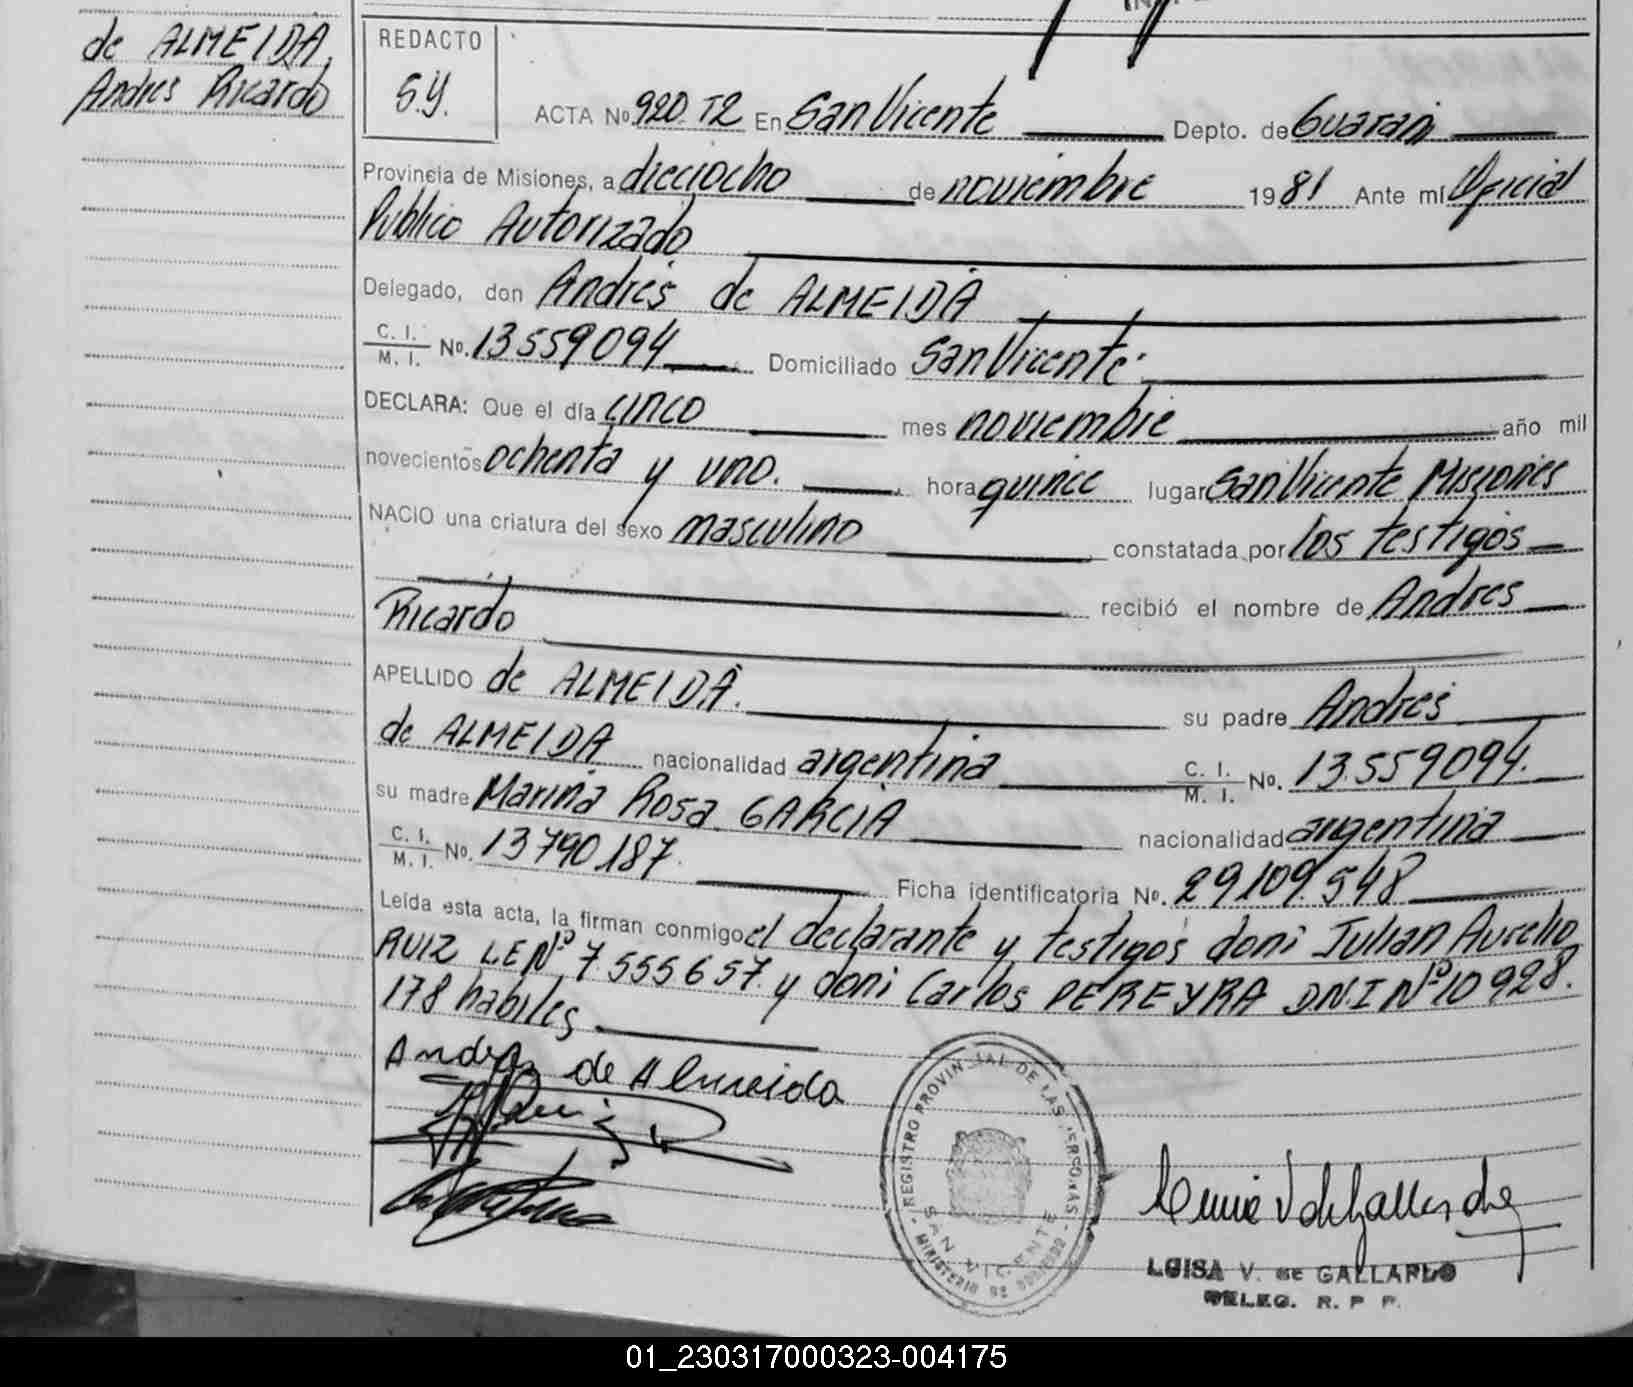 de ALMEIDA,
Andres Ricardo
REDACTO
S.y.
ACTA No. 920 T2 En San Vicente Depto. de Guarani
Provincia de Misiones, a dieciocho de noviembre 1981 Ante mi Oficial
Publico Autorizado
Delegado, don Andrés de ALMEIDA
C. I. / M. I. No. 13559094 Domiciliado San Vicente.
DECLARA: Que el día cinco mes noviembre año mil
novecientos ochenta y uno. hora quince lugar San Vicente Misiones
NACIO una criatura del sexo masculino constatada por los testigos
recibió el nombre de Andres
Ricardo
APELLIDO de ALMEIDA. su padre Andres
de ALMEIDA nacionalidad argentina C. I. / M. I. No. 13.559094.
su madre Marina Rosa GARCIA nacionalidad argentina
C. I. / M. I. No. 13790187. Ficha identificatoria No. 29.109.548
Leída esta acta, la firman conmigo el declarante y testigos doni Julian Aurelio
RUIZ LE Nº 7.555657. y doni Carlos PEREYRA D.N.I Nº 10928.
178 habiles
Andres de Almeida
REGISTRO PROVINCIAL DE LAS PERSONAS
SAN VICENTE
MINISTERIO DE GOBIERNO
LUISA V. de GALLARDO
DELEG. R. P. P.
01_230317000323-004175